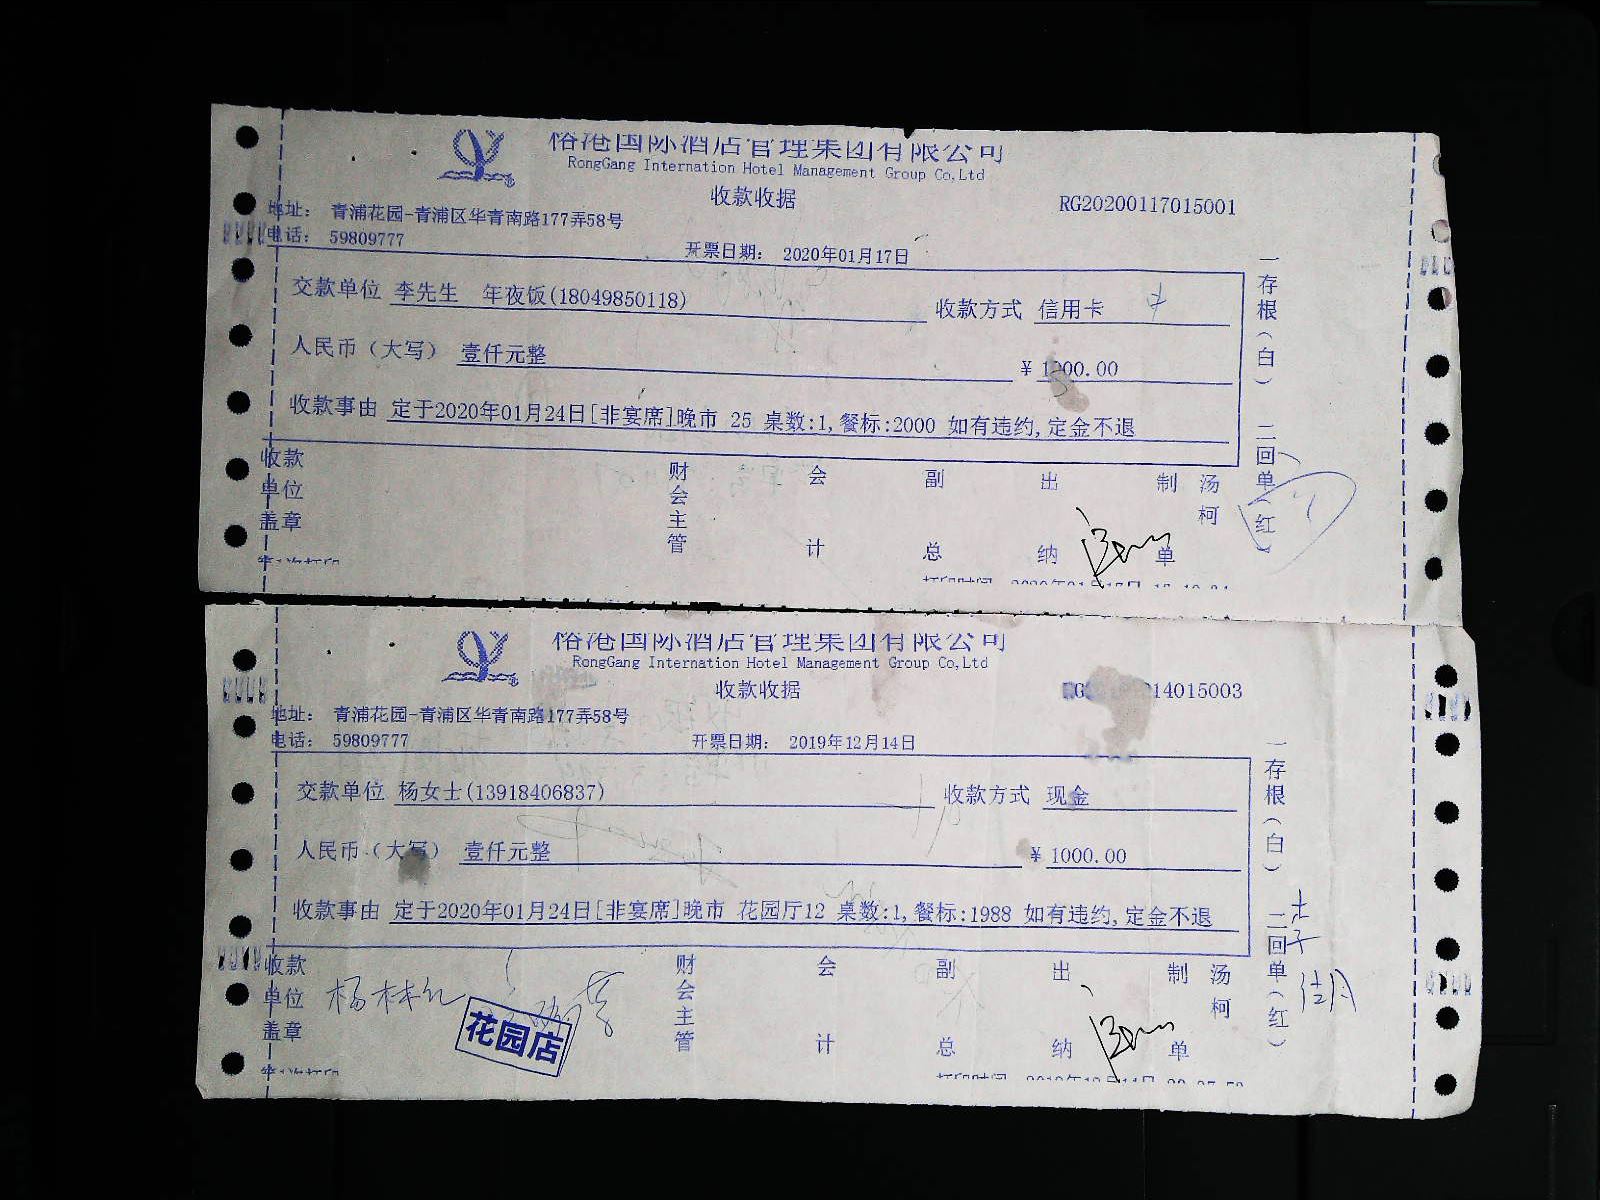 榕港国际酒店管理集团有限公司
RongGang Internation Hotel Management Group Co,Ltd
收款收据
RG20200117015001
地址: 青浦花园-青浦区华青南路177弄58号
电话: 59809777
开票日期: 2020年01月17日
交款单位 李先生 年夜饭(18049850118) 收款方式 信用卡
人民币(大写) 壹仟元整 ¥ 1000.00
收款事由 定于2020年01月24日[非宴席]晚市 25 桌数:1,餐标:2000 如有违约,定金不退
收款单位盖章 财会主管 会计 副总 出纳 制单 汤柯
一存根(白) 二回单(红)
榕港国际酒店管理集团有限公司
RongGang Internation Hotel Management Group Co,Ltd
收款收据
14015003
地址: 青浦花园-青浦区华青南路177弄58号
电话: 59809777
开票日期: 2019年12月14日
交款单位 杨女士(13918406837) 收款方式 现金
人民币(大写) 壹仟元整 ¥ 1000.00
收款事由 定于2020年01月24日[非宴席]晚市 花园厅12 桌数:1,餐标:1988 如有违约,定金不退
收款单位盖章 财会主管 会计 副总 出纳 制单 汤柯
一存根(白) 二回单(红)
花园店